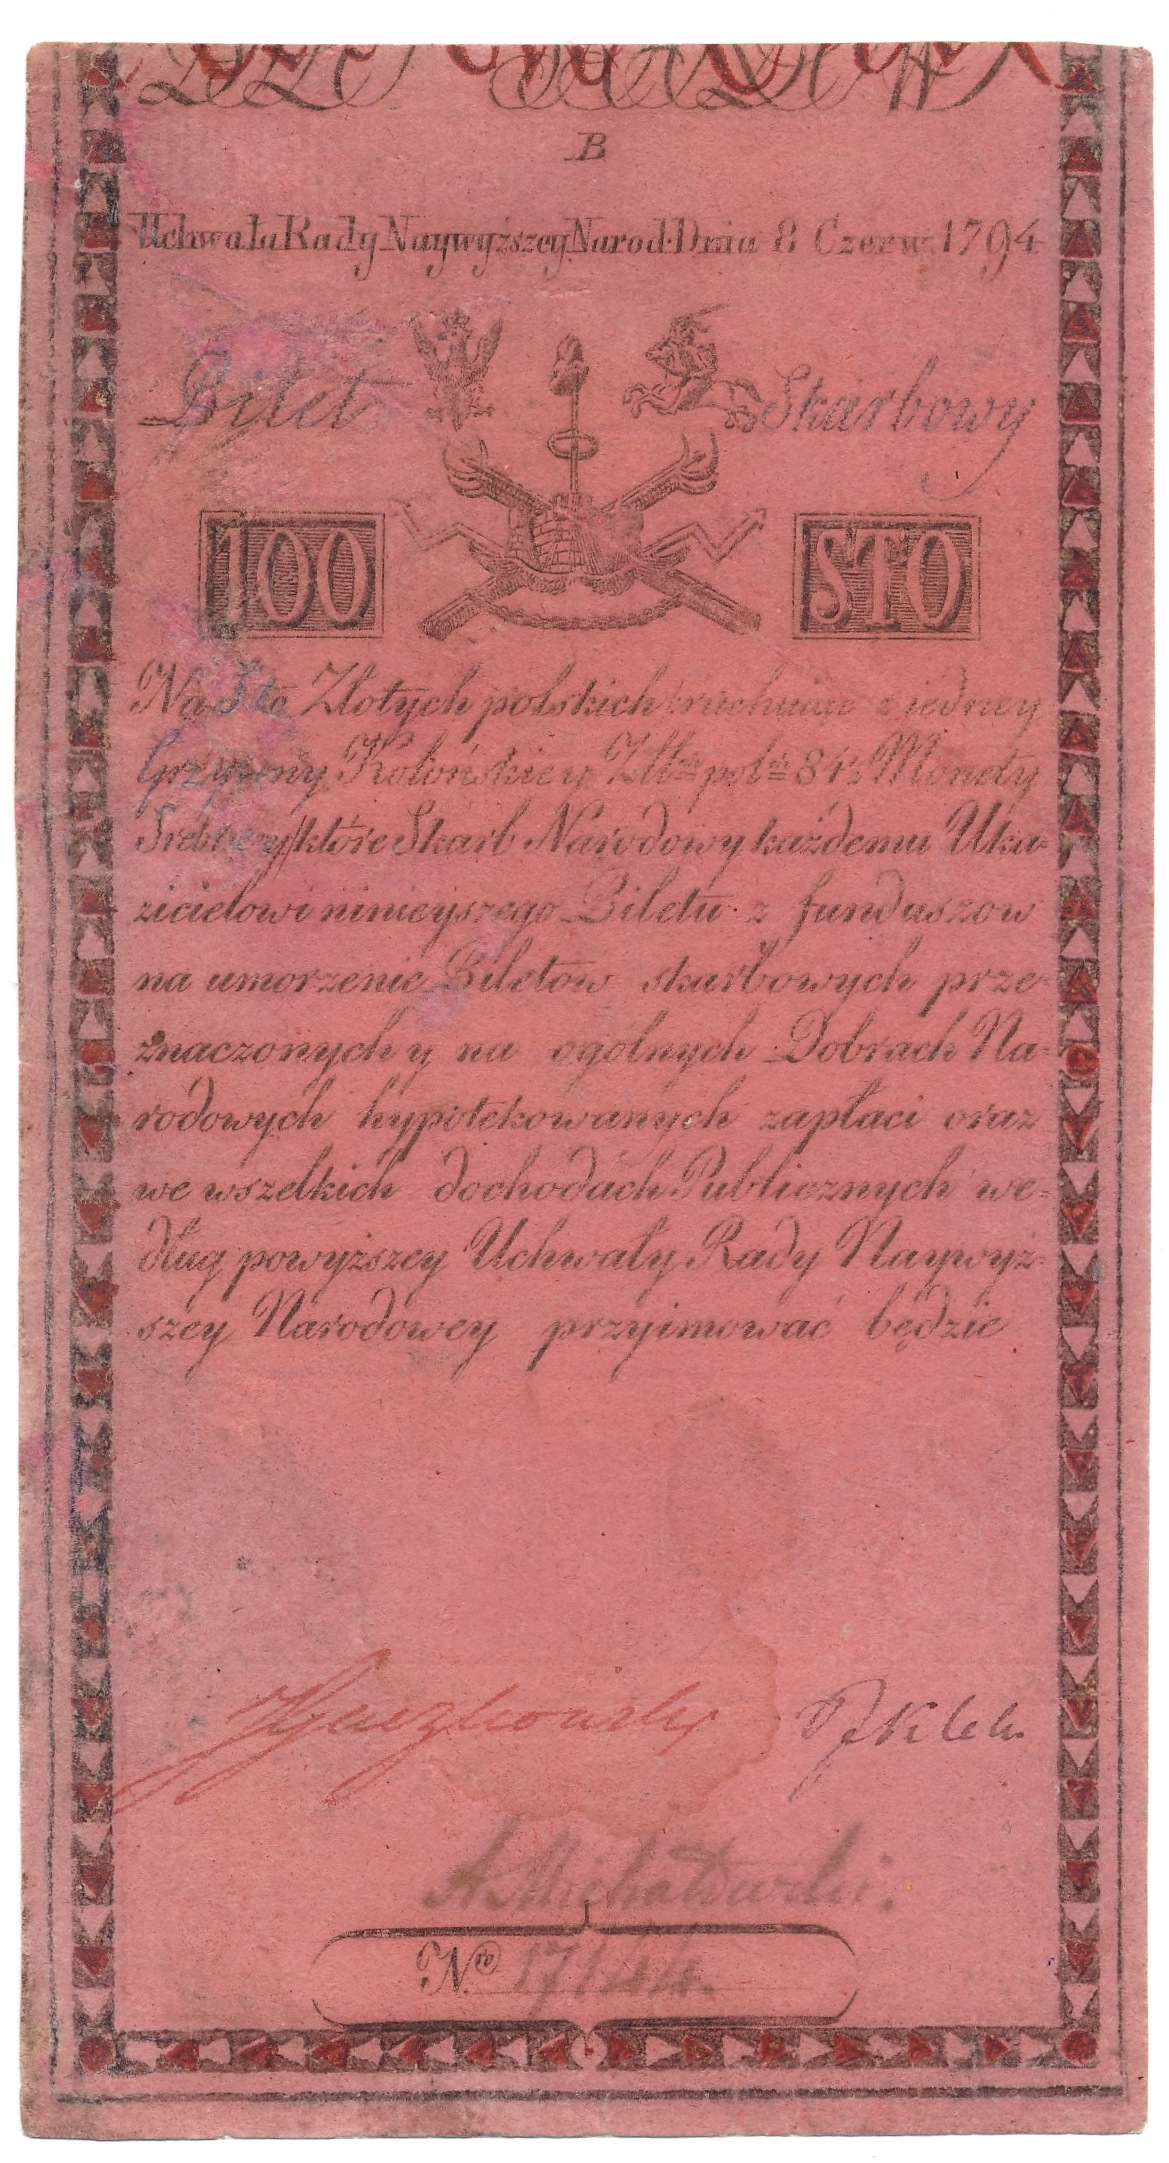 B
Uchwała Rady Naywyższey Narod: Dnia 8 Czerw: 1794
Bilet Skarbowy
100 STO
Na Sto Złotych polskich /rachuiąc z iedney
Grzywny Kolońskiey Złł: pol: 84½ Monety
Srebrney/ które Skarb Narodowy każdemu Uka=
zicielowi ninieyszego Biletu z funduszow
na umorzenie Biletow skarbowych prze=
znaczonych y na ogolnych Dobrach Na=
rodowych hypotekowanych zapłaci oraz
we wszelkich dochodach Publicznych we=
dług powyższey Uchwały Rady Naywyż=
szey Narodowey przyimować będzie
A Michałowski.
Nro 17144.